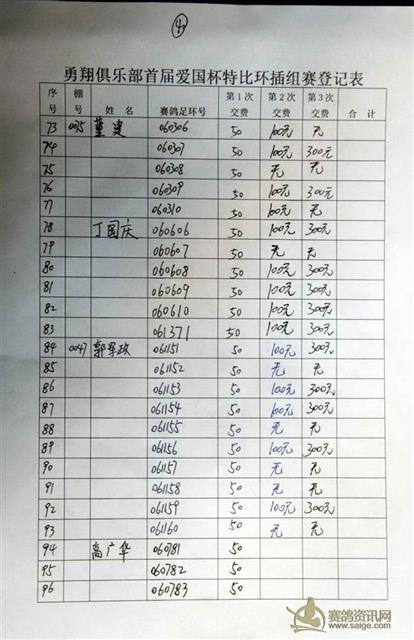 4
勇翔俱乐部首届爱国杯特比环插组赛登记表
序号 棚号 姓名 赛鸽足环号 第1次交费 第2次交费 第3次交费 合计
73 0015 董建 060306 50 100元 无
74 060307 50 100元 300元
75 060308 50 无 无
76 060309 50 100元 300元
77 060310 50 100元 无
78 丁国庆 060606 50 100元 300元
79 060607 50 无 无
80 060608 50 100元 300元
81 060609 50 100元 300元
82 060610 50 100元 300元
83 061371 50 100元 300元
84 0047 郭军政 061151 50 100元 300元
85 061152 50 无 无
86 061153 50 100元 300元
87 061154 50 100元 300元
88 061155 50 无 无
89 061156 50 100元 300元
90 061157 50 无 无
91 061158 50 无 无
92 061159 50 100元 300元
93 061160 50 无 无
94 高广华 060781 50
95 060782 50
96 060783 50
赛鸽资讯网
www.saige.com